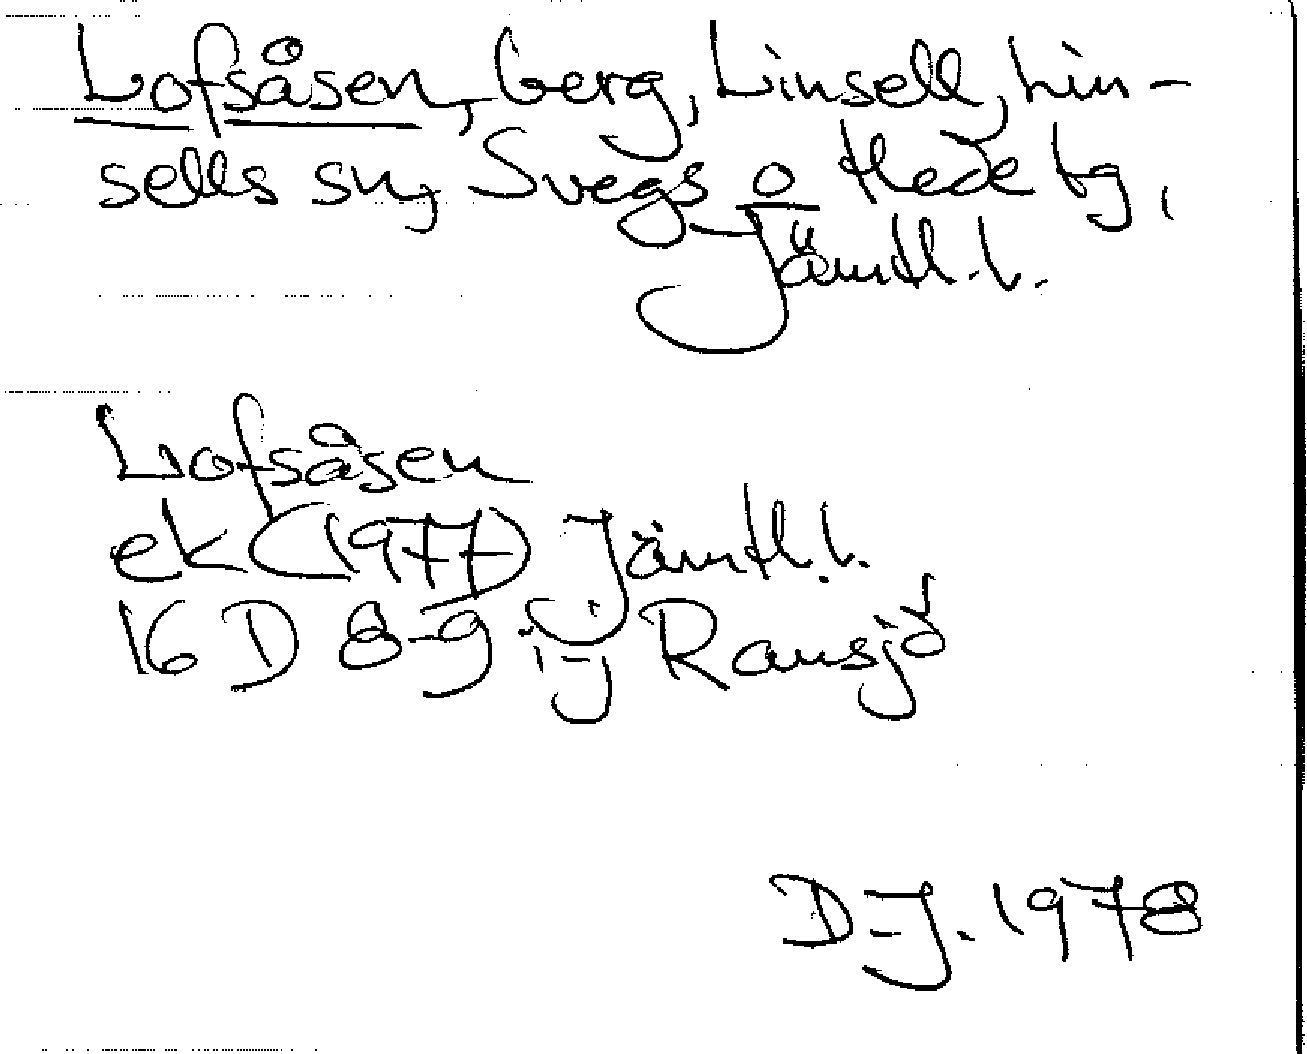 Lofsåsen, berg, Linsell, Lin-
sells sn, Svegs o Hede tg,
Jämtl. l.
Lofsåsen
ek (1977) Jämtl. l.
16 D 8-9 i-j Ransjö
D-J. 1978